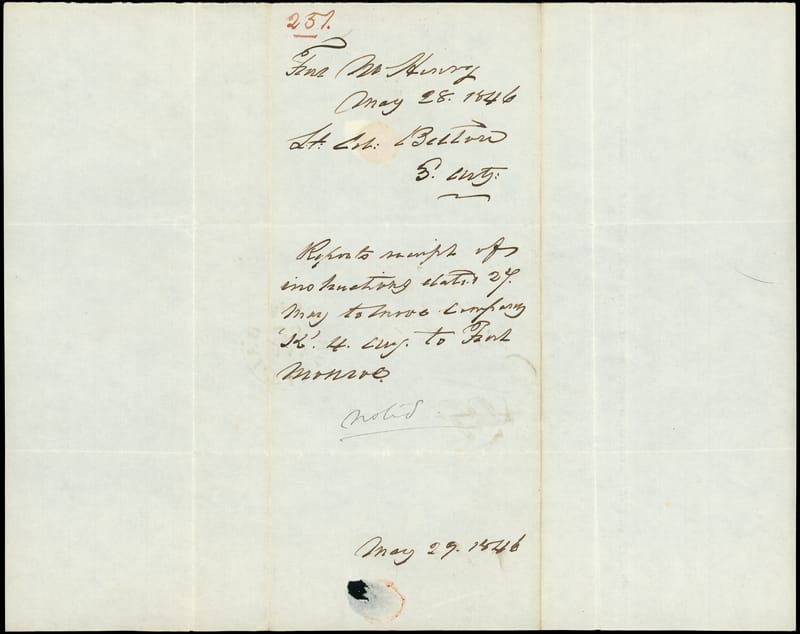 251.
Fort McHenry
May 28. 1846
Lt. Col: Belton
3. Arty:
Reports receipt of
instructions dated 27.
May to move Company
'K'. 4. Arty. to Fort
Monroe.
noted
May 29. 1846